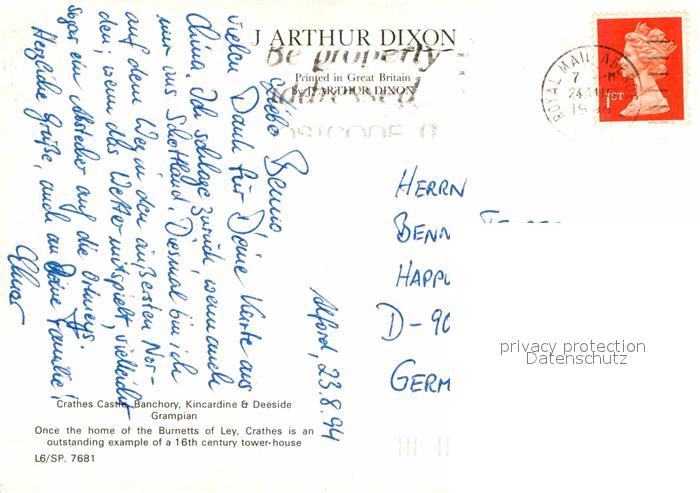 J ARTHUR DIXON
Be properly
addressed
POSTCODE IT
Printed in Great Britain
by J. ARTHUR DIXON
ROYAL MAIL
24
19
1ST
Alford, 23.8.94
Lieber Benno
vielen Dank für Deine Karte aus
China. Ich schlage zurück, wenn auch
nur aus Schottland. Diesmal bin ich
auf dem Weg in den äußersten Nor-
den; wenn das Wetter mitspielt, vielleicht
sogar ein Abstecher auf die Orkneys.
Herzliche Grüße, auch an Deine Familie!
HERRN
BENN
HAPP
D-90
GERM
privacy protection
Datenschutz
Crathes Castle, Banchory, Kincardine & Deeside
Grampian
Once the home of the Burnetts of Ley, Crathes is an
outstanding example of a 16th century tower-house
L6/SP. 7681